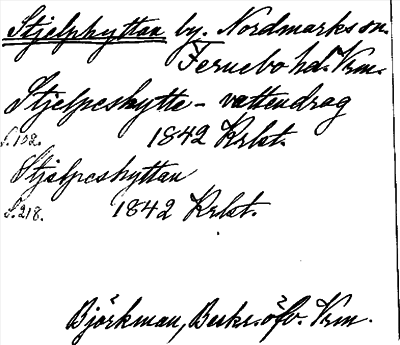 Stjelphyttan by. Nordmarks sn.
Fernebo hd. Vrm.
Stjelpeshytte-vattendrag
S.152. 1842 Krlst.
Stjelpeshyttan
S.218. 1842 Krlst.
Björkman, Beskr. öfv. Vrm.